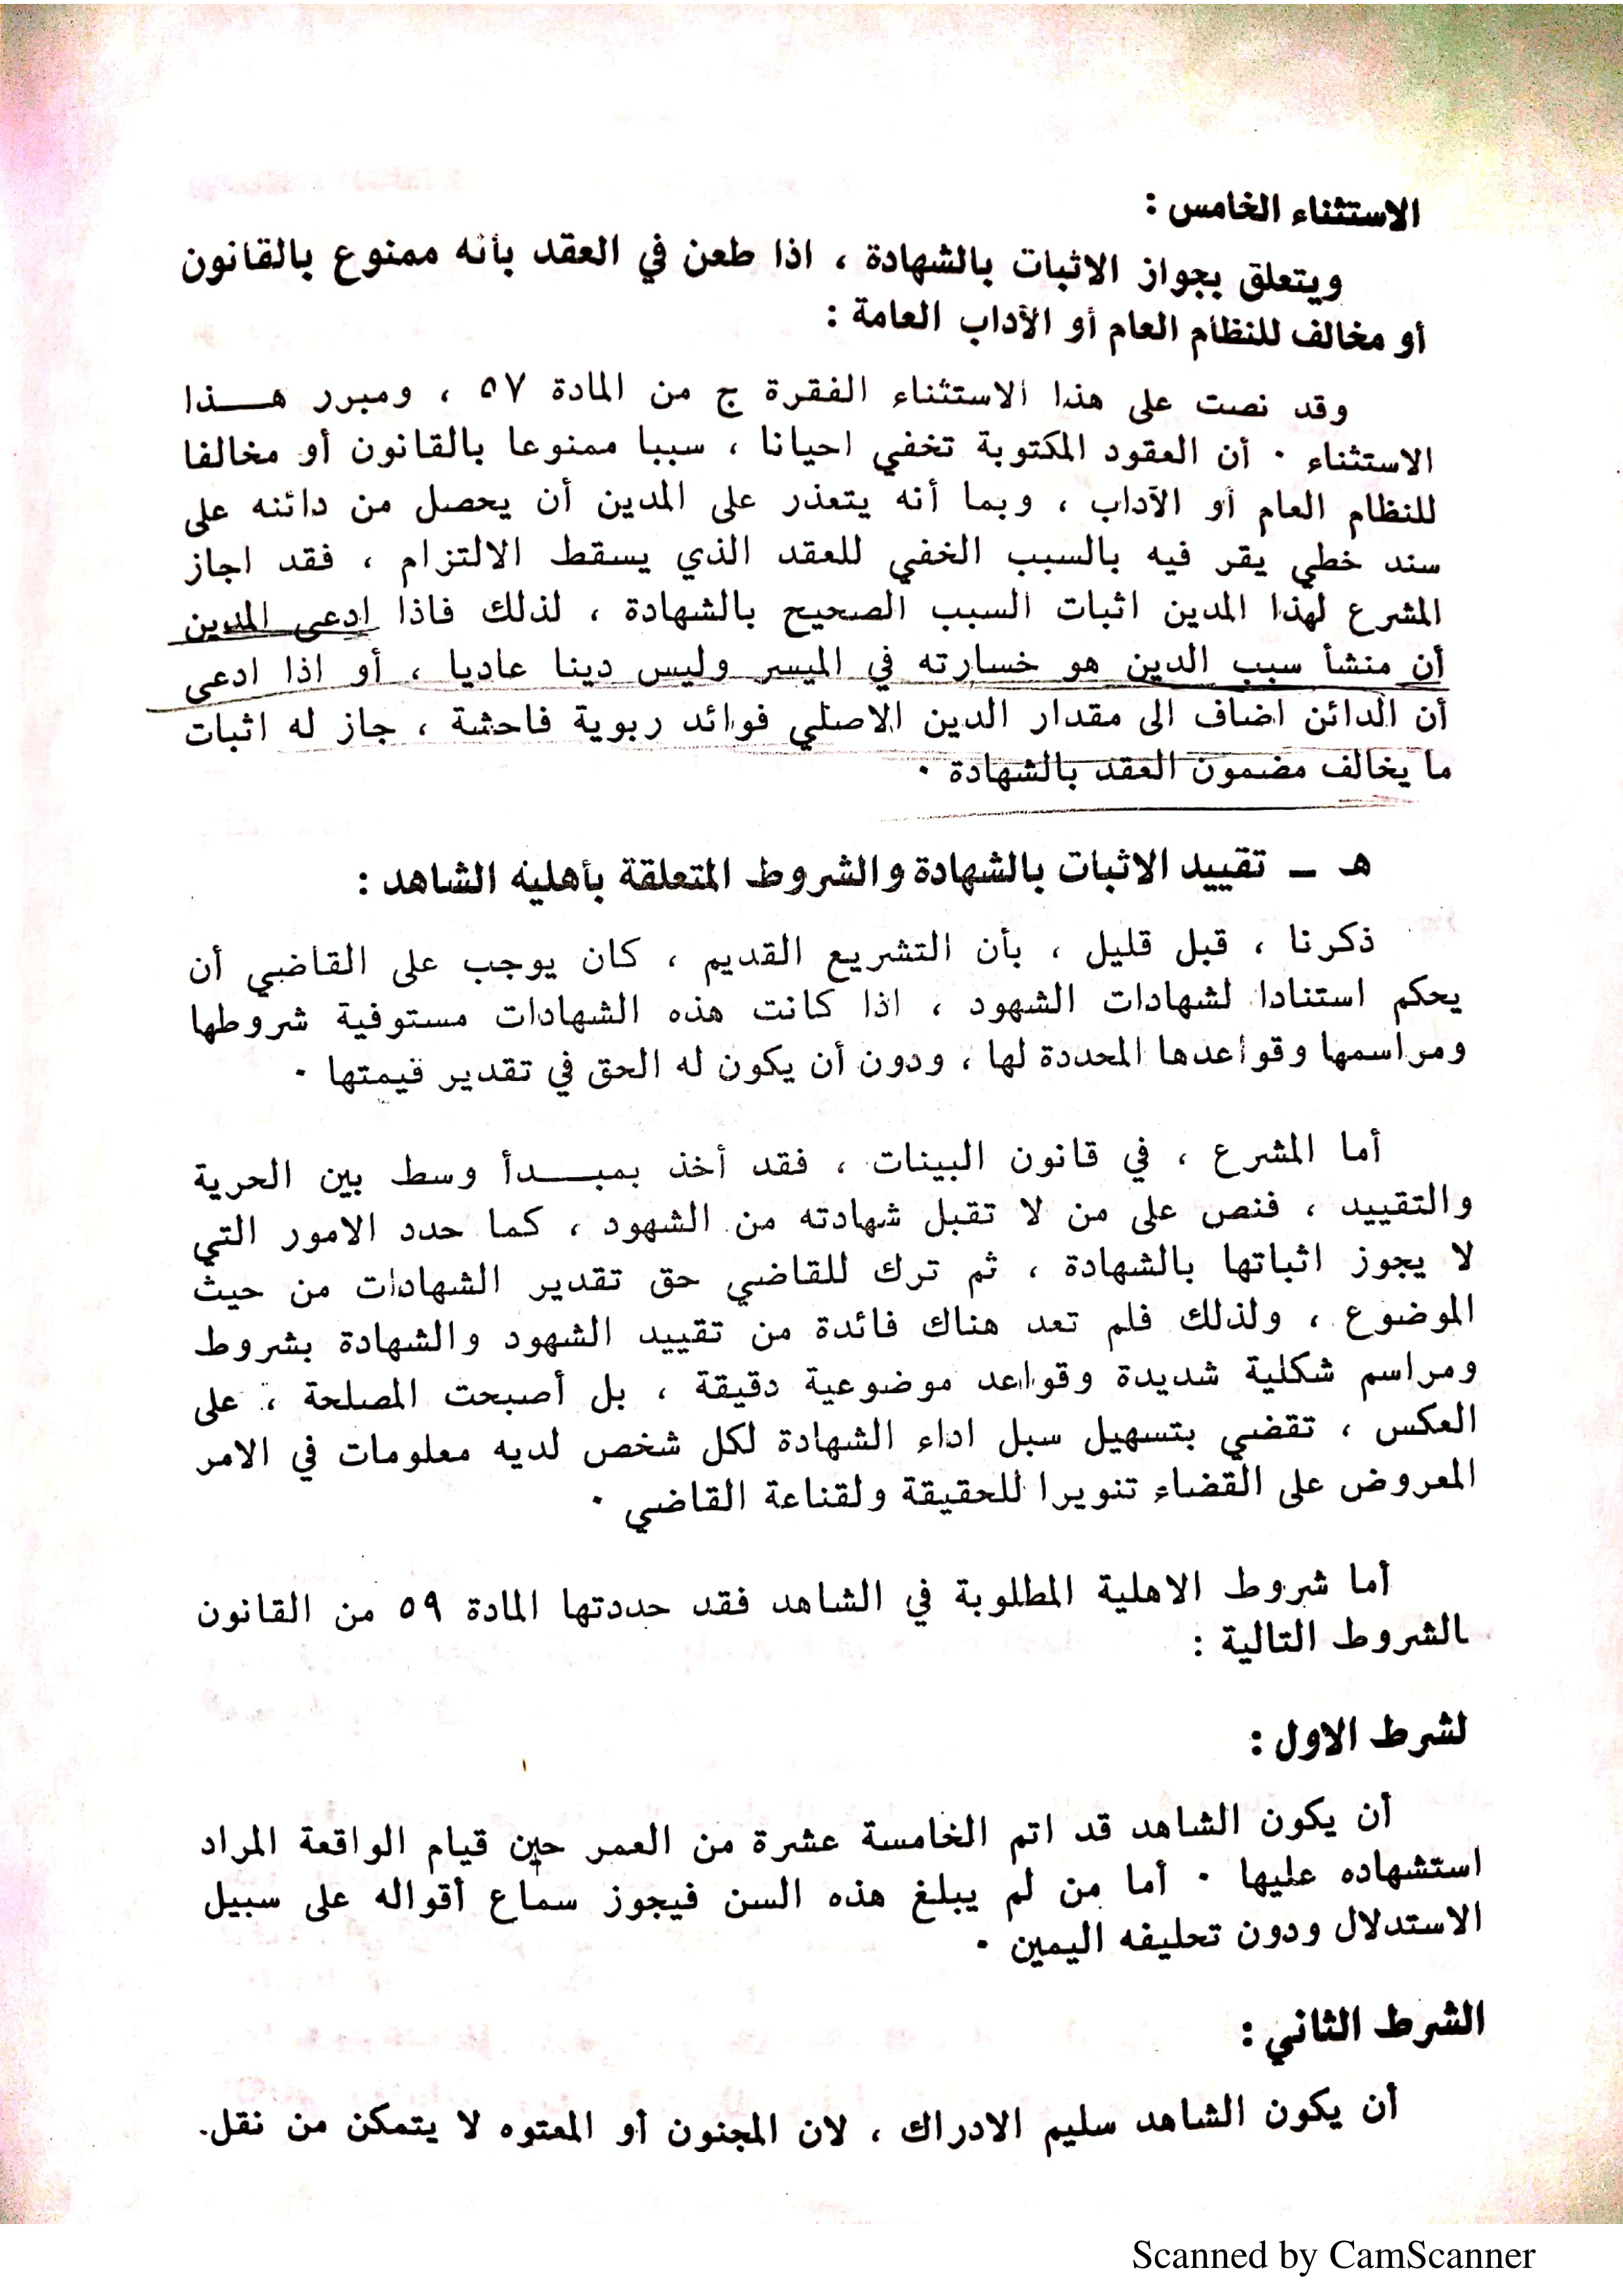 الاستثناء الخامس :
ويتعلق بجواز الاثبات بالشهادة ، اذا طعن في العقد بأنه ممنوع بالقانون
أو مخالف للنظام العام أو الأداب العامة :
وقد نصت على هذا الاستثناء الفقرة ج من المادة ٥٧ ، ومبرر هـــذا
الاستثناء ٠ أن العقود المكتوبة تخفي احيانا ، سببا ممنوعا بالقانون أو مخالفا
للنظام العام أو الآداب ، وبما أنه يتعذر على المدين أن يحصل من دائنه على
سند خطي يقر فيه بالسبب الخفي للعقد الذي يسقط الالتزام ، فقد اجاز
المشرع لهذا المدين اثبات السبب الصحيح بالشهادة ، لذلك فاذا ادعى المدين
أن منشأ سبب الدين هو خسارته في الميسر وليس دينا عاديا ، أو اذا ادعى
أن الدائن اضاف الى مقدار الدين الاصلي فوائد ربوية فاحشة ، جاز له اثبات
ما يخالف مضمون العقد بالشهادة ٠
هـ ـ تقييد الاثبات بالشهادة والشروط المتعلقة بأهلية الشاهد :
ذكرنا ، قبل قليل ، بأن التشريع القديم ، كان يوجب على القاضي أن
يحكم استنادا لشهادات الشهود ، اذا كانت هذه الشهادات مستوفية شروطها
ومراسمها وقواعدها المحددة لها ، ودون أن يكون له الحق في تقدير قيمتها ٠
أما المشرع ، في قانون البينات ، فقد أخذ بمبـــدأ وسط بين الحرية
والتقييد ، فنص على من لا تقبل شهادته من الشهود ، كما حدد الامور التي
لا يجوز اثباتها بالشهادة ، ثم ترك للقاضي حق تقدير الشهادات من حيث
الموضوع ، ولذلك فلم تعد هناك فائدة من تقييد الشهود والشهادة بشروط
ومراسم شكلية شديدة وقواعد موضوعية دقيقة ، بل أصبحت المصلحة ، على
العكس ، تقضي بتسهيل سبل اداء الشهادة لكل شخص لديه معلومات في الامر
المعروض على القضاء تنويرا للحقيقة ولقناعة القاضي ٠
أما شروط الاهلية المطلوبة في الشاهد فقد حددتها المادة ٥٩ من القانون
بالشروط التالية :
لشرط الاول :
أن يكون الشاهد قد اتم الخامسة عشرة من العمر حين قيام الواقعة المراد
استشهاده عليها ٠ أما من لم يبلغ هذه السن فيجوز سماع أقواله على سبيل
الاستدلال ودون تحليفه اليمين ٠
الشرط الثاني :
أن يكون الشاهد سليم الادراك ، لان المجنون أو المعتوه لا يتمكن من نقل.
Scanned by CamScanner